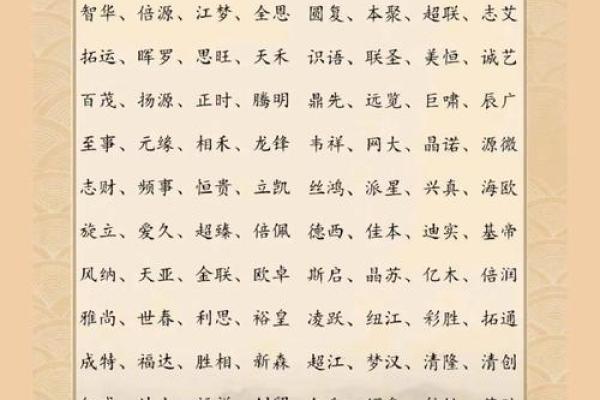 智华、倍源、江梦、全恩 圆复、本聚、超联、志艾
拓运、晖罗、思旺、天禾 识语、联圣、美恒、诚艺
百茂、扬源、正时、腾明 鼎先、远览、巨啸、辰广
至事、元缘、相禾、龙锋 韦祥、网大、晶诺、源微
志财、频事、恒贵、立凯 丝鸿、派星、兴真、海欧
旋立、爱久、超臻、倍佩 德西、佳本、迪实、基帝
风纳、天亚、金联、欧卓 斯启、晶苏、亿木、倍润
雅尚、世春、利思、裕皇 凌跃、纽江、彩胜、拓通
成特、福达、胜相、新森 超江、梦汉、清隆、清创